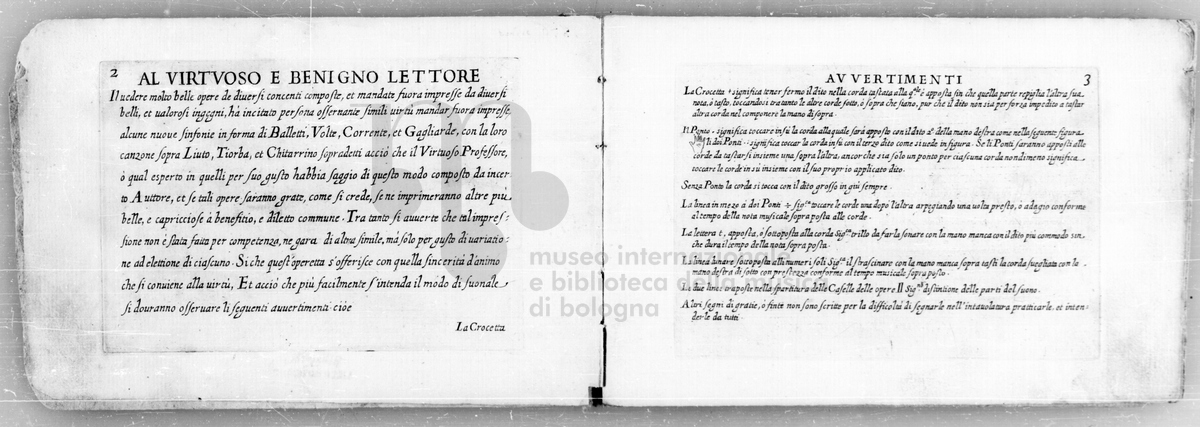 2
AL VIRTVOSO E BENIGNO LETTORE
Il uedere molto belle opere de diuersi concenti composte, et mandate fuora impresse da diuersi
belli, et ualorosi ingegni, hà incitato persona osseruante simili uirtù mandar fuora impresse
alcune nuoue sinfonie in forma di Balletti, Volte, Corrente, et Gagliarde, con la loro
canzone sopra Liuto, Tiorba, et Chitarrino sopradetti acciò che il Virtuoso Professore,
ò qual esperto in quelli per suo gusto habbia saggio di questo modo composto da incer
to Auttore, et se tali opere saranno grate, come si crede, se ne imprimeranno altre più
belle, e capricciose à benefitio, e diletto commune. Tra tanto si auuerte che tal impres-
sione non è stata fatta per competenza, ne gara di altra simile, mà solo per gusto di uariatio-
ne ad elettione di ciascuno. Si che quest'operetta s'offerisce con quella sincerità d'animo
che si conuiene alla uirtù, Et acciò che più facilmente s'intenda il modo di suonale
si douranno osseruare li seguenti auuertimenti cioè
La Crocetta
AVVERTIMENTI
3
La Crocetta + significa tener fermo il dito nella corda tastata alla qle è apposta sin che quella parte repiglia l'altra sua
nota, ò tasto, toccandosi tra tanto le altre corde sotto, ò sopra che siano, pur che il dito non sia per forza impedito a tastar
altra corda nel componere la mano di sopra.
Il Ponto . significa toccare in sù la corda alla quale sarà apposto con il dito 2o della mano destra come nella seguente figura
li doi Ponti .. significa toccar la corda in sù con il terzo dito come si uede in figura. Se li Ponti saranno apposti alle
corde da tastarsi insieme una sopra l'altra, ancor che sia solo un ponto per ciascuna corda nondimeno significa
toccare le corde in sù insieme con il suo proprio applicato dito.
Senza Ponto la corda si tocca con il dito grosso in giù sempre.
La linea in mezo à doi Ponti ÷ sigca toccare le corde una dopo l'altra arpegiando una uolta presto, ò adagio conforme
al tempo della nota musicale sopra posta alle corde.
La lettera t, apposta, ò sottoposta alla corda Sigca trillo da farla sonare con la mano manca con il dito più commodo sin
che dura il tempo della nota sopra posta.
La linea lunare sottoposta alli numeri soli Sigca il strascinare con la mano manca sopra tasti la corda suegliata con la
mano destra di sotto con prestezza conforme al tempo musicale sopra posto.
Le due linee traposte nella spartitura delle Caselle delle opere || Signo distintione delle parti del suono.
Altri segni di gratie, ò finte non sono scritte per la difficoltà di segnarle nell'intauolatura pratticarle, et inten
derle da tutti.
museo internazionale
e biblioteca della musica
di bologna